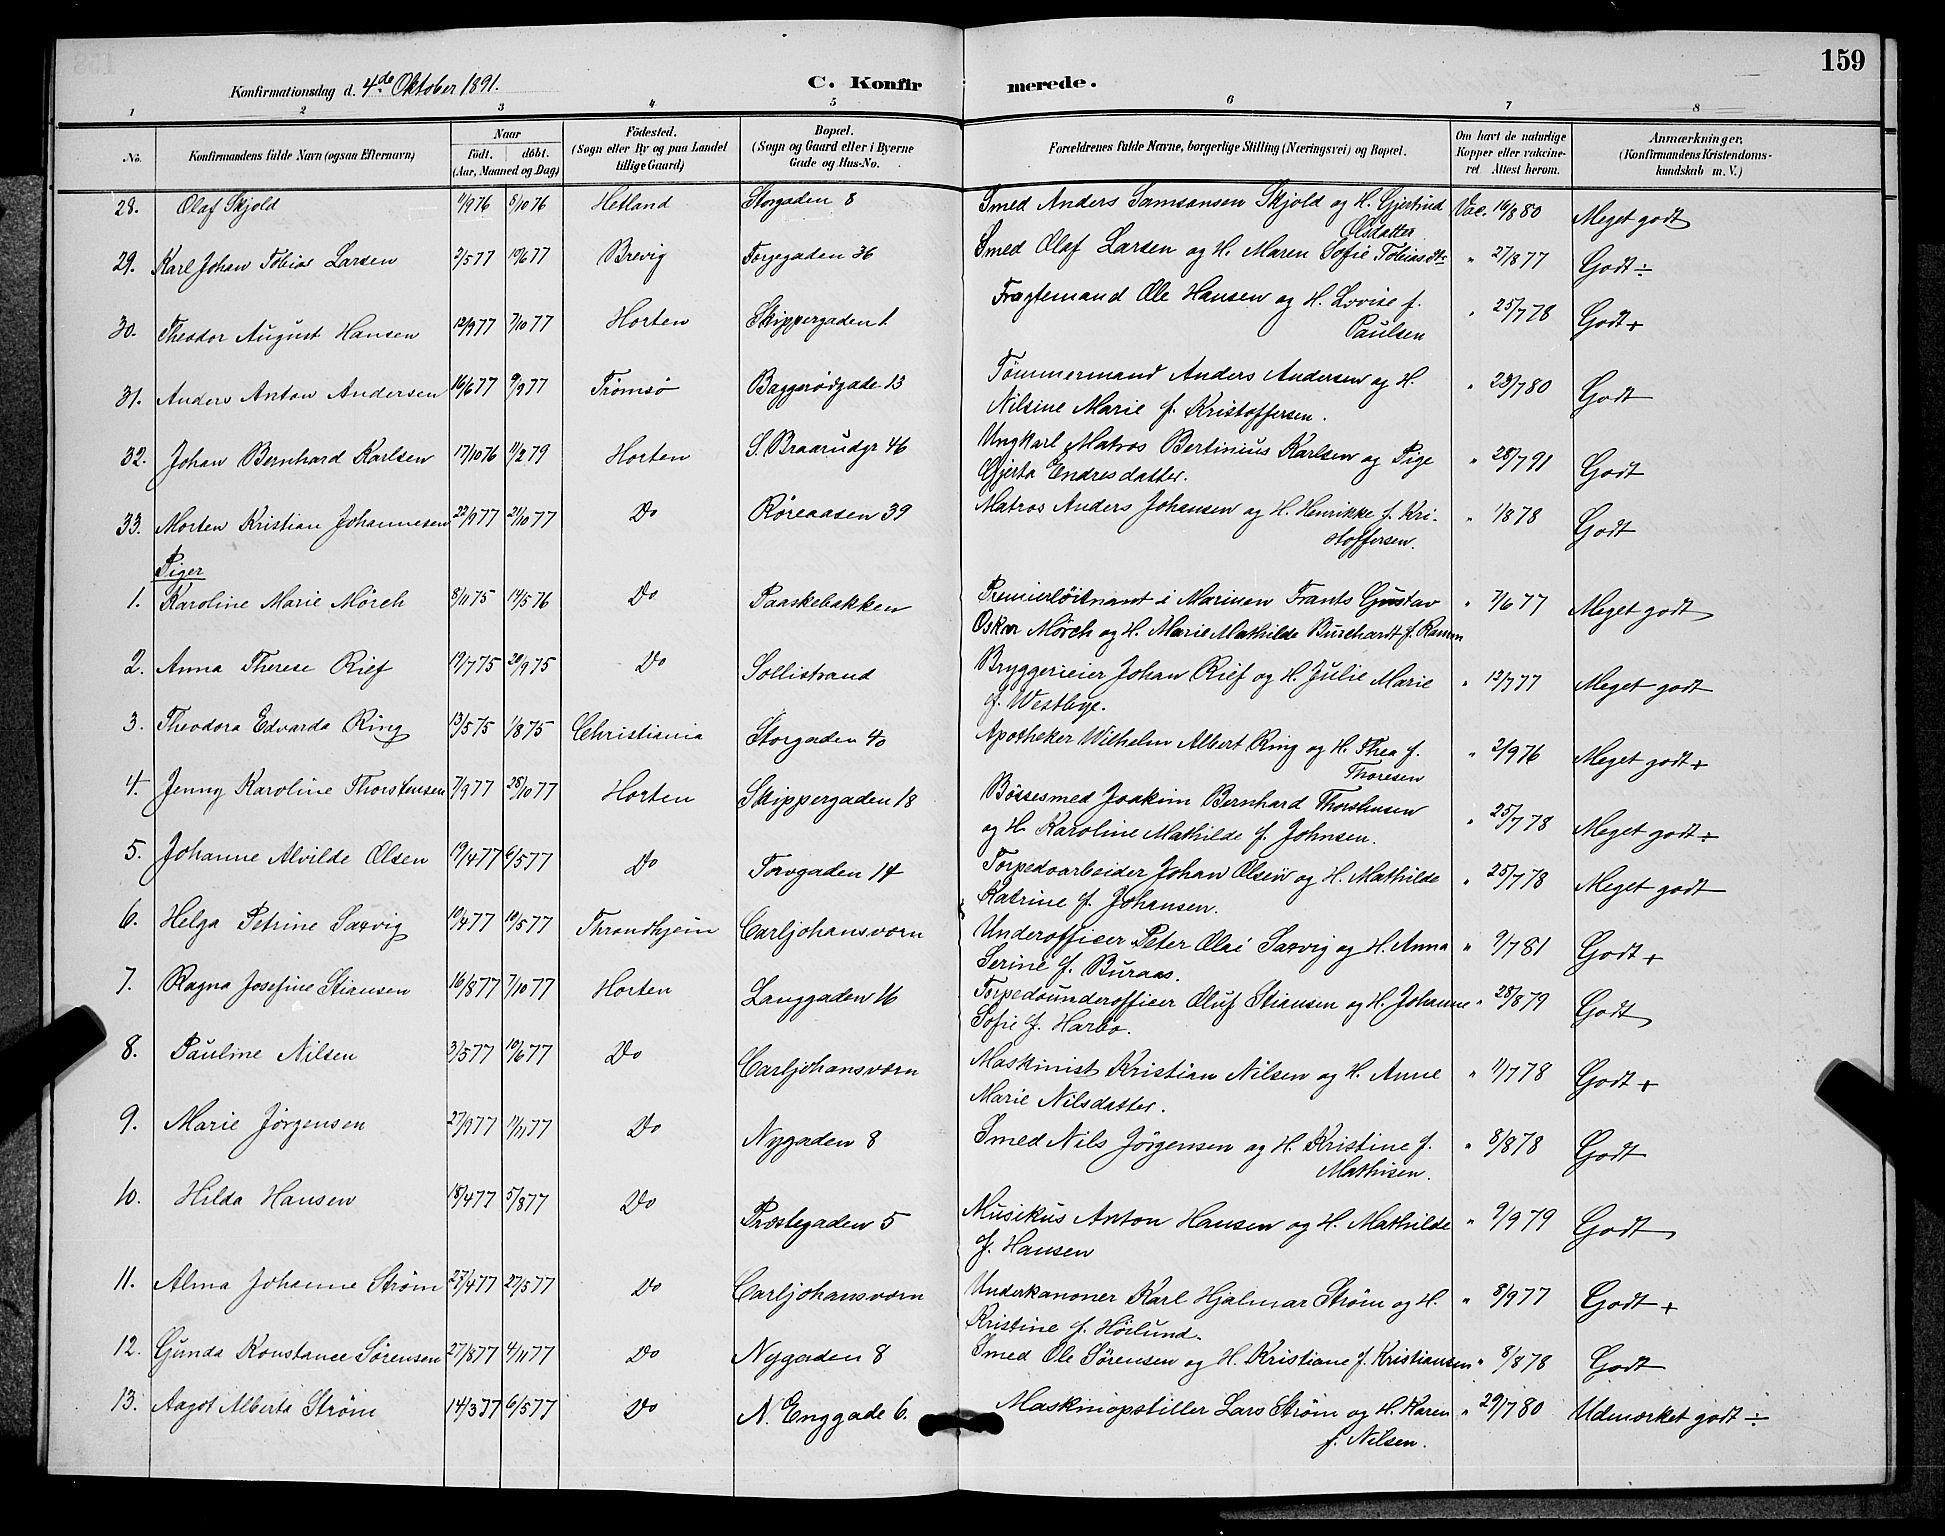 159
Konfirmationsdag d. 4de Oktober 1891. C. Konfirmerede.
1 2 3 4 5 6 7 8
No. Konfirmandens fulde Navn (ogsaa Efternavn) Naar Födt. döbt. (Aar, Maaned og Dag) Födested. (Sogn eller By og paa Landet tillige Gaard) Bopæl. (Sogn og Gaard eller i Byerne Gade og Hus-No. Forældrenes fulde Navne, borgerlige Stilling (Næringsvei) og Bopæl. Om havt de naturlige Kopper eller vakcineret Attest herom. Anmærkninger, (Konfirmandens Kristendomskundskab m. V.)
28. Olaf Skjold 4/976 5/1076 Hetland Storgaden 8 Smed Anders Samsonsen Skjold og H. Gjertrud Vac. 16/880 Meget godt
Olsdatter
29. Karl Johan Tobias Larsen 2/577 10/677 Brevig Torgegaden 36 Smed Olaf Larsen og H. Maren Sofie Tobiasdtr " 27/877 Godt ÷
30. Theodor August Hansen 12/977 7/1077 Horten Skippergaden 1 Fragtemand Ole Hansen og H. Lovise f. " 25/778 Godt +
Paulsen
31. Anders Anton Andersen 16/677 9/977 Tromsø Baggerødgade 13 Tømmermand Anders Andersen og H. " 23/780 Godt
Nilsine Marie f. Kristoffersen.
32. Johan Bernhard Karlsen 17/1076 11/279 Horten S. Braarudgr 46 Ungkarl Matros Bertinius Karlsen og Pige " 28/791 Godt
Gjerta Endresdatter.
33. Morten Kristian Johannesen 22/977 21/1077 Do Røreaasen 39 Matros Anders Johansen og H. Henrikke f. Kri- " 1/878 Godt
stoffersen.
Piger
1. Karoline Marie Mörch 8/1175 14/576 Do Paaskebakken Premierlöitnant i Marinen Frants Gustav " 7/677 Meget godt
Oskar Mörch og H. Marie Mathilde Burchardt f. Ramm
2. Anna Therese Rief 19/775 20/975 Do Sollistrand Bryggerieier Johan Rief og H. Julie Marie " 12/777 Meget godt
f. Westbye.
3. Theodora Edvarda Ring 13/575 1/875 Christiania Storgaden 40 Apotheker Wilhelm Albert Ring og H. Thea f. " 2/976 Meget godt +
Thoresen
4. Jenny Karoline Thorstensen 7/977 28/1077 Horten Skippergaden 18 Bössesmed Joakim Bernhard Thorstensen " 25/778 Meget godt ÷
og H. Karoline Mathilde f. Johnsen.
5. Johanne Alvilde Olsen 19/477 6/577 Do Torvgaden 14 Torpedoarbeider Johan Olsen og H. Mathilde " 25/778 Meget godt
Katrine f. Johansen.
6. Helga Petrine Saxvig 10/477 10/577 Throndhjem Carljohansværn Underofficer Peter Olai Saxvig og H. Anna " 9/781 Godt +
Serine f. Buraas.
7. Ragna Josefine Stiansen 16/877 7/1077 Horten Langgaden 16 Torpedounderofficer Oluf Stiansen og H. Johanne " 28/879 Godt
Sofie f. Harbo.
8. Pauline Nilsen 3/577 10/677 Do Carljohansværn Maskinist Kristian Nilsen og H. Anne " 11/778 Godt +
Marie Nilsdatter.
9. Marie Jørgensen 27/977 11/1177 Do Nygaden 8 Smed Nils Jørgensen og H. Kristine f. " 8/878 Godt
Mathisen.
10. Hilda Hansen 18/477 5/877 Do Præstegaden 5 Musikus Anton Hansen og H. Mathilde " 9/979 Godt
f. Hansen
11. Alma Johanne Strøm 27/477 27/577 Do Carljohansværn Underkanoner Karl Hjalmar Strøm og H. " 8/977 Godt +
Kristine f. Hörlund.
12. Gunda Konstance Sørensen 27/877 4/1177 Do Nygaden 8 Smed Ole Sørensen og H. Kristiane f. Kristiansen " 8/878 Godt
13. Aagot Alberta Strøm 14/377 6/577 Do N. Enggade 6. Maskinopstiller Lars Strøm og H. Karen " 29/780 Udmærket godt ÷
f. Nilsen.